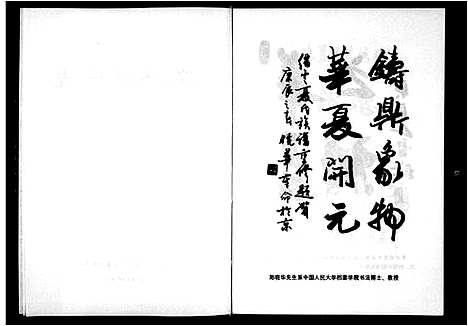 鑄鼎象物
華夏開元
仙士夏氏族譜重修題賀
庚辰之春 曉華奉命於京
郑晓华先生系中国人民大学档案学院书法博士、教授